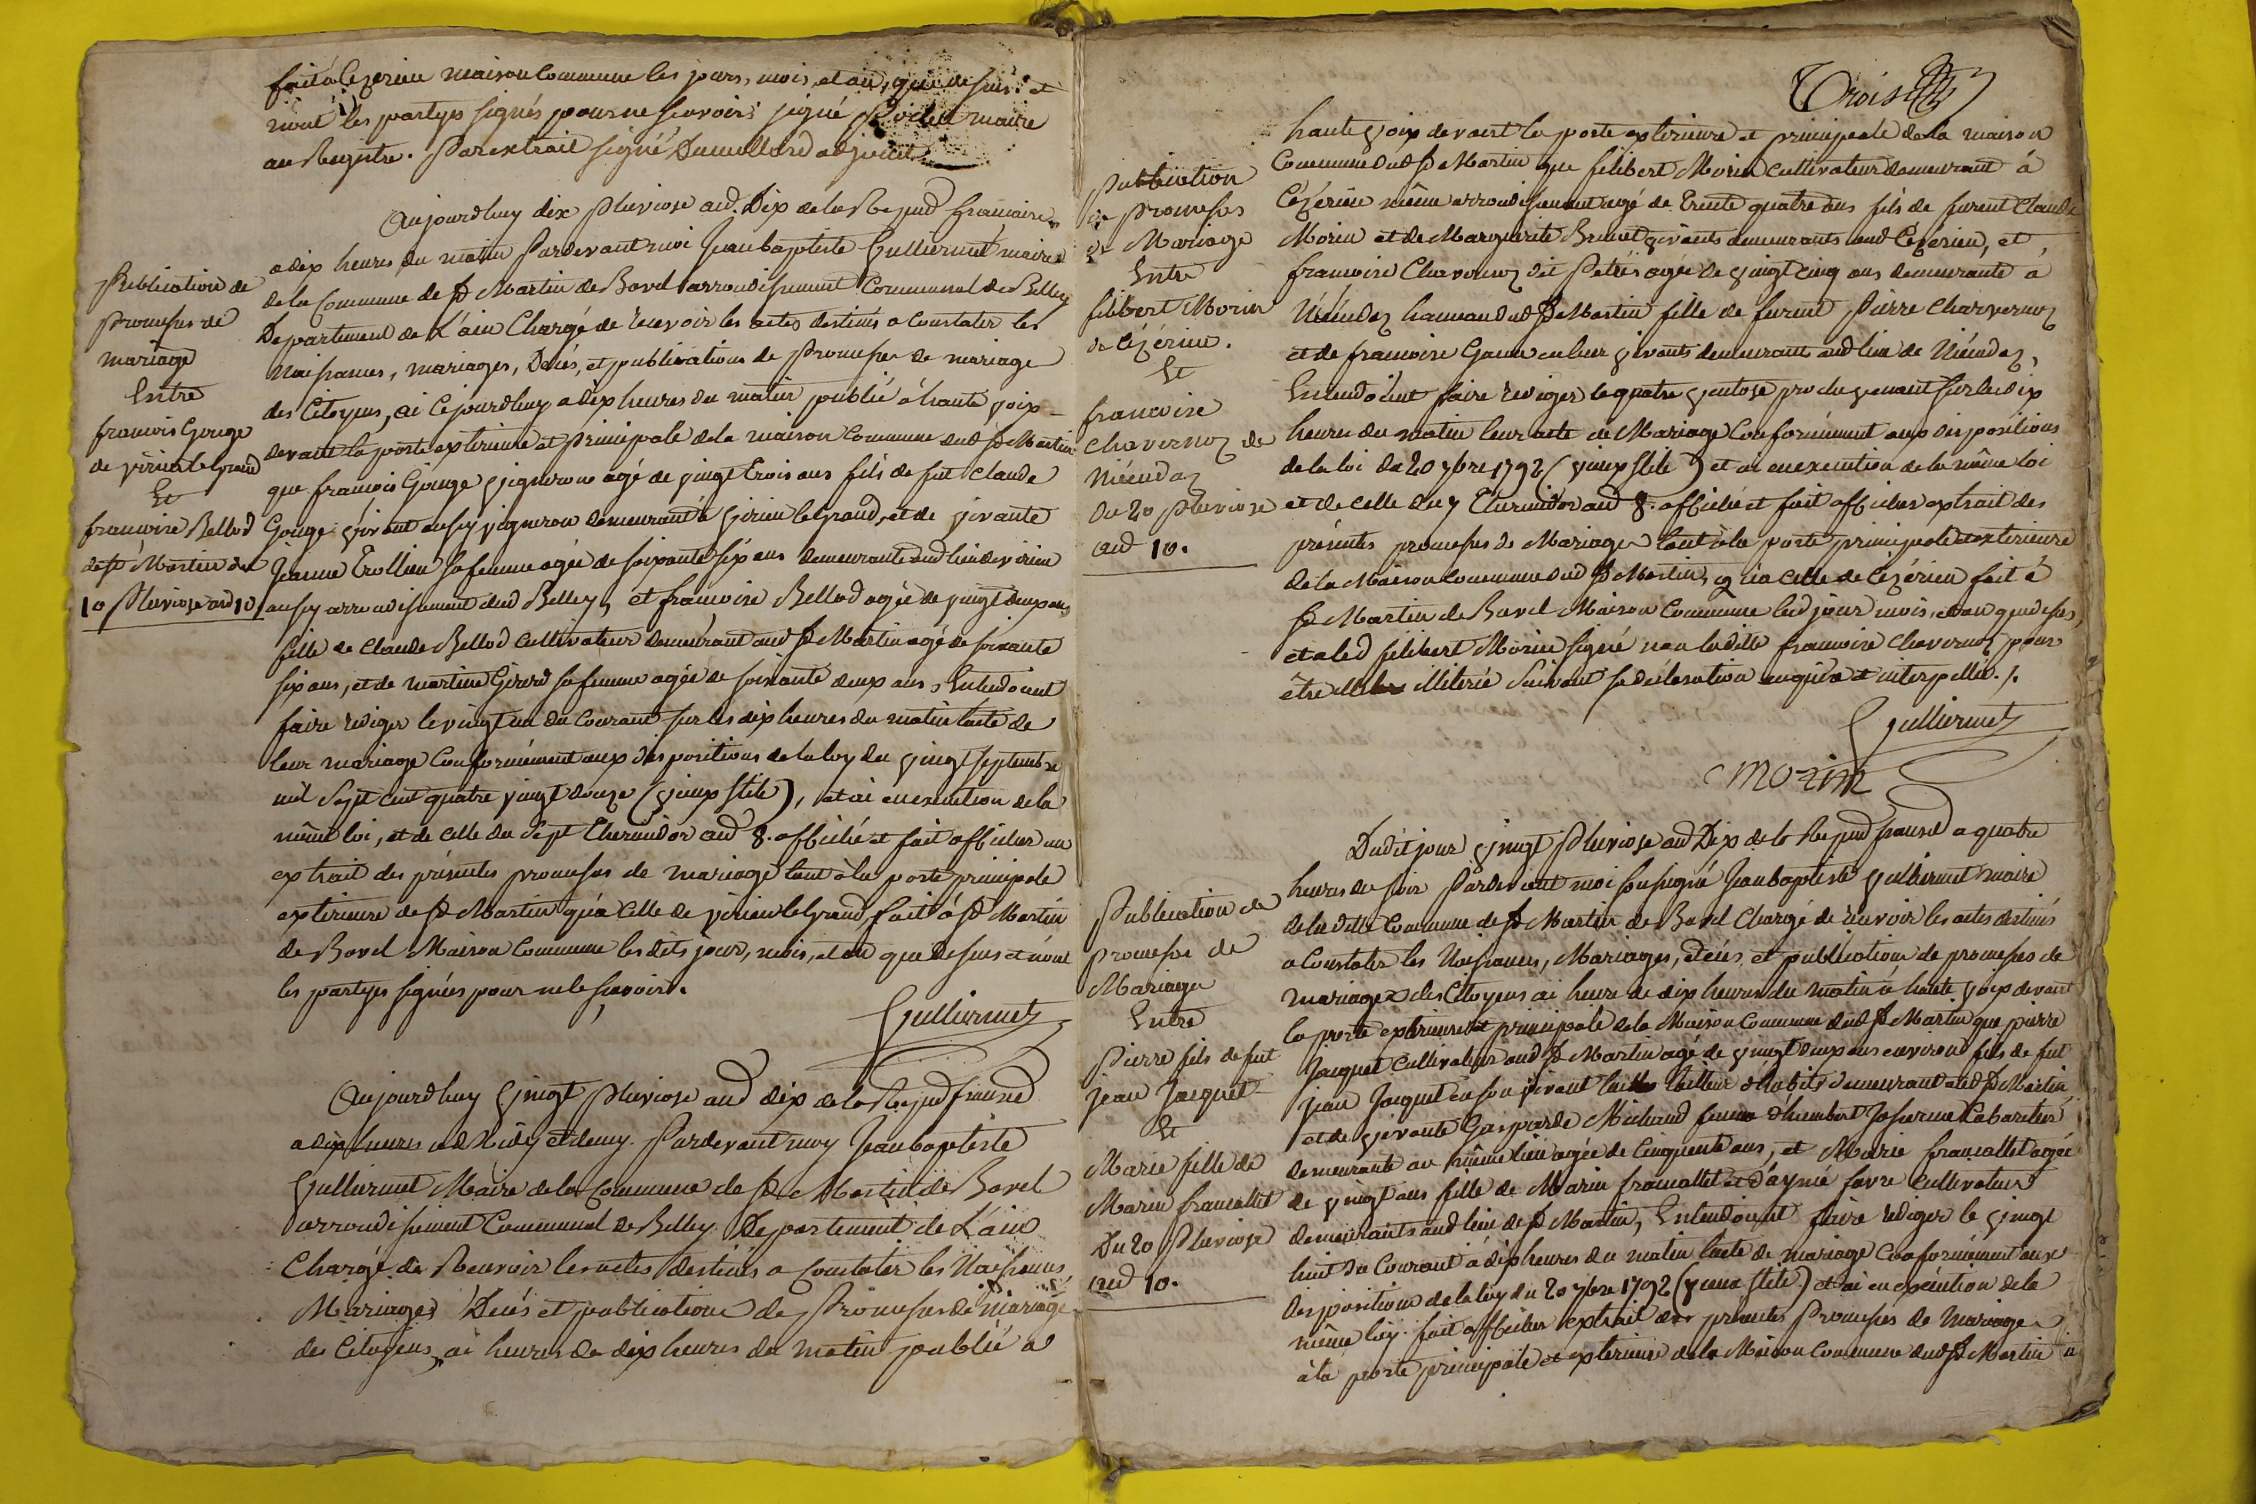 fait à Cezerieu maison Commune les jours, mois, et an, que desus et
n'ont les partyes signés pour ne scavoir; signé maire
au Registre. Par extrait signé Dumollard adjoint
Publication de
promeses de
mariage
Entre
francois Gouge
de virieu le grand
Et
francoise Bellod
de St Martin du
10 Pluviose and 10
Aujourdhuy dix Pluviose and Dix de la Repud francaise
a dix heures du matin Pardevant moi Jean baptiste Gulliermet maire
de la Commune de St Martin de Bavel arrondisement Communal de Belley
Departement de L'ain Chargé de recevoir les actes destinés a Constater les
Naisances, mariages, Décés, et publications de Promeses de mariage
des Citoyens, ai Cejourdhuy a dix heures du matin publié à haute voix
devant la porte exterieure et Principale de la maison Commune dud St Martin
que francois Gouge vigneron agé de vingt trois ans fils de fut Claude
Gouge vivant ausy vigneron demeurant à virieu le grand, et de vivante
Jeanne Trollieu sa femme agée de soixante six ans demeurante aud lieu de virieu
ausy arrondisement dud Belley, et francoise Bellod agée de vingt deux ans
fille de Claude Bellod Cultivateur demeurant aud St Martin agé de soixante
six ans, et de martine Girerd sa femme agée de soixante deux ans, Entendoient
faire rediger le vingt un du Courant sur les dix heures du matin lacte de
leur mariage Conformément aux dispositions de la loy du vingt septembre
mil Sept cent quatre vingt douze (vieux stile), et ai en execution de la
même loi, et de celle du Sept Thermidor and 8. affiché et fait afficher un
extrait des présentes promeses de mariage tant à la porte principale
exterieure de St Martin qu'a Celle de virieu le Grand, fait à St Martin
de Bavel Maison Commune les dits jour, mois, et an que desus et n'ont
les partyes signées pour ne le scavoir.
Gulliermet
Aujourdhuy vingt pluviose and dix de la Repud francd
a dix heures ad Midy et demy. Pardevant moy Jean baptiste
Gulliermet Maire de la Commune de St Martin de Bavel
arrondisement Communal de Belley Departement de L'ain
Chargé de Recevoir les actes destinés a Constater les Naisances
Mariages Décés et publications de Promeses de mariage
des Citoyens, ai heures de dix heures du matin publié a
Trois
Publication
de promeses
de Mariage
Entre
filibert Morin
de Cézérieu.
Et
francoise
Chavernoz de
Niéudaz
Du 20 Pluviose
and 10.
haute voix devant la porte exterieure et principale de la maison
Commune dud St Martin que filibert Morin Cultivateur demeurant à
Cézérieu même arrondisement agé de trente quatre ans fils de furent Claude
Morin et de Marguerite Brunet vivants demeurants aud Cezérieu, et
francoise Chavernoz dit Petrés agée de vingt cinq ans demeurante à
Niéudaz hameau dud St Martin fille de furent Pierre Charvernoz
et de francoise vivants demeurants aud lieu de Niéudaz,
Entendoient faire rediger le quatre ventose pro du venant sur les dix
heures du matin leur acte de Mariage Conformément aux dispositions
de la loi du 20 7bre 1792 (vieux stile) et ai en execution de la même loi
et de celle du 7 Thermidor and 8. affiché et fait afficher extrait des
présentes promeses de Mariage tant à la porte principale et exterieure
de la Maison Commune dud St Martin, qu'a Celle de Cezérieu fait à
St Martin de Bavel Maison Commune led jour mois, et an que desus,
et a led filibert Morin signé non la ditte francoise Chavernoz pour
être illiterée Suivant sa déclaration enquise et interpellée./.
Gulliermet
Morin
Publication de
promese de
Mariage
Entre
Pierre fils de fut
jean Jacquet
Et
Marie fille de
Marin francallet
Du 20 Pluviose
and 10.
Dudit jour vingt Pluviose and Dix de la Repud francd a quatre
heures du soir Pardevant moi sousigné Jean baptiste Gulliermet maire
de la ditte Commune de St Martin de Bavel Chargé de recevoir les actes destinés
a Constater les Naisances, Mariages, décés, et publication de promeses de
mariage des Citoyens ai heure de dix heures du matin à haute voix devant
la porte exterieure et principale de la Maison Commune dud St Martin que pierre
Jacquet Cultivateur aud St Martin agé de vingt deux ans environd fils de fut
jean Jacquet en son vivant tailleur d'habits demeurant aud St Martin
et de vivante Gasparde Michaud femme d'humbert Joserme Cabaretier
demeurante au même lieu agée de Cinquante ans, et Marie francallet agée
de vingt ans fille de Marin francallet et d'aymé favre Cultivateurs
demeurants aud lieu de St Martin, Entendoient faire rediger le vingt
huit du Courant à dix heures du matin lacte de mariage Conformément aux
disposition de la loy du 20 7bre 1792 (vieux stile) et ai en exécution de la
même loy. fait afficher extrait des presentes Promeses de Mariage
à la porte principale et exterieure de la Maison Commune dud St Martin